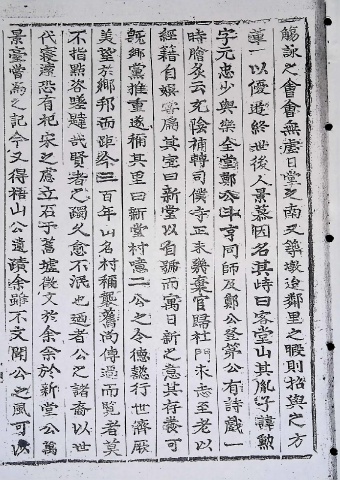 觴詠之會會無虛日堂之南又築墩迨鄰里之暇則招與之方
蓽一以優遊終世後人景慕因名其峙曰客堂山其胤子諱勲
字元忠少與樂全堂鄭公斗亨同師及鄭公登第公有詩戲一
時膾炙云尤陰補轉司僕寺正未幾棄官歸杜門求志至老以
經籍自娛客扁其室曰新堂以自號而寓日新之意其存養可
既鄉黨推重遂稱其里曰新堂村噫二公之令德懿行世濟厥
美望於鄉邦而距今三百年山名村稱襲舊尚傳過而覽者莫
不指點咨嗟韙哉賢者之躅久愈不泯也迺者公之諸裔以世
代寖濶恐有杞宋之慮立石于舊墟徵文於余余於新堂公萬
景臺嘗為之記今又得梧山公遺蹟余雖不文聞公之風可以